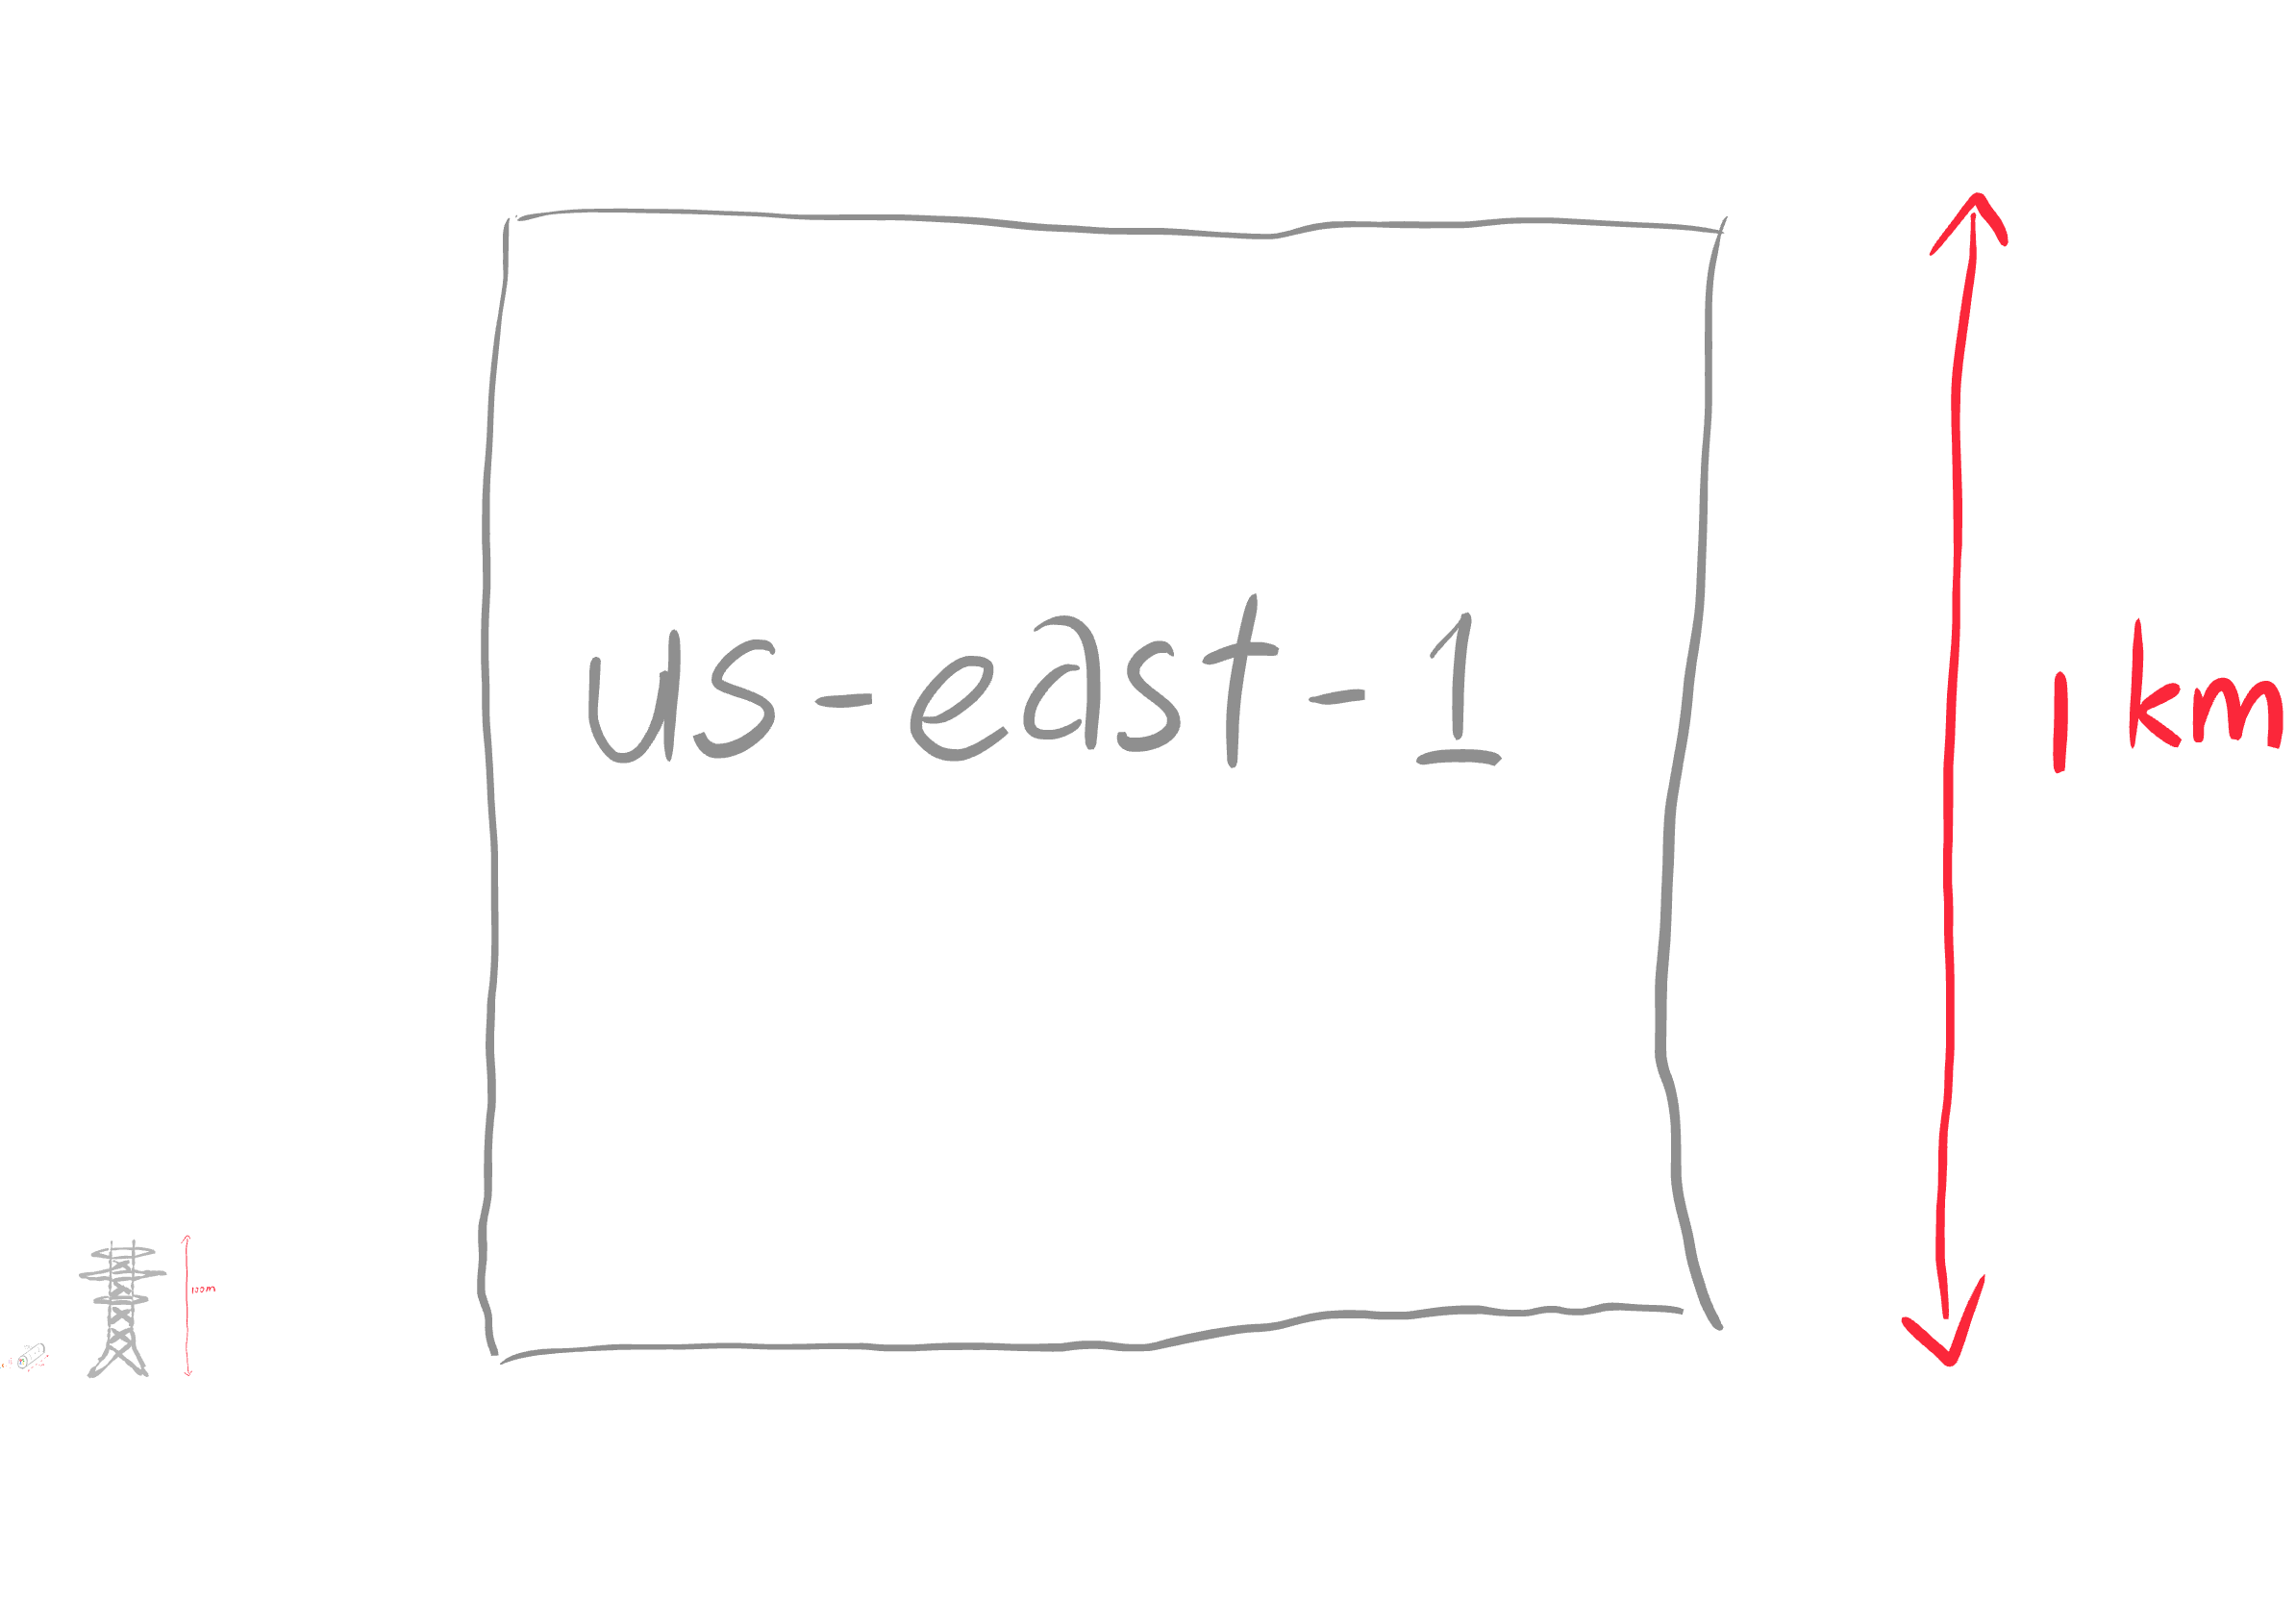 us-east-1
1 km
100m